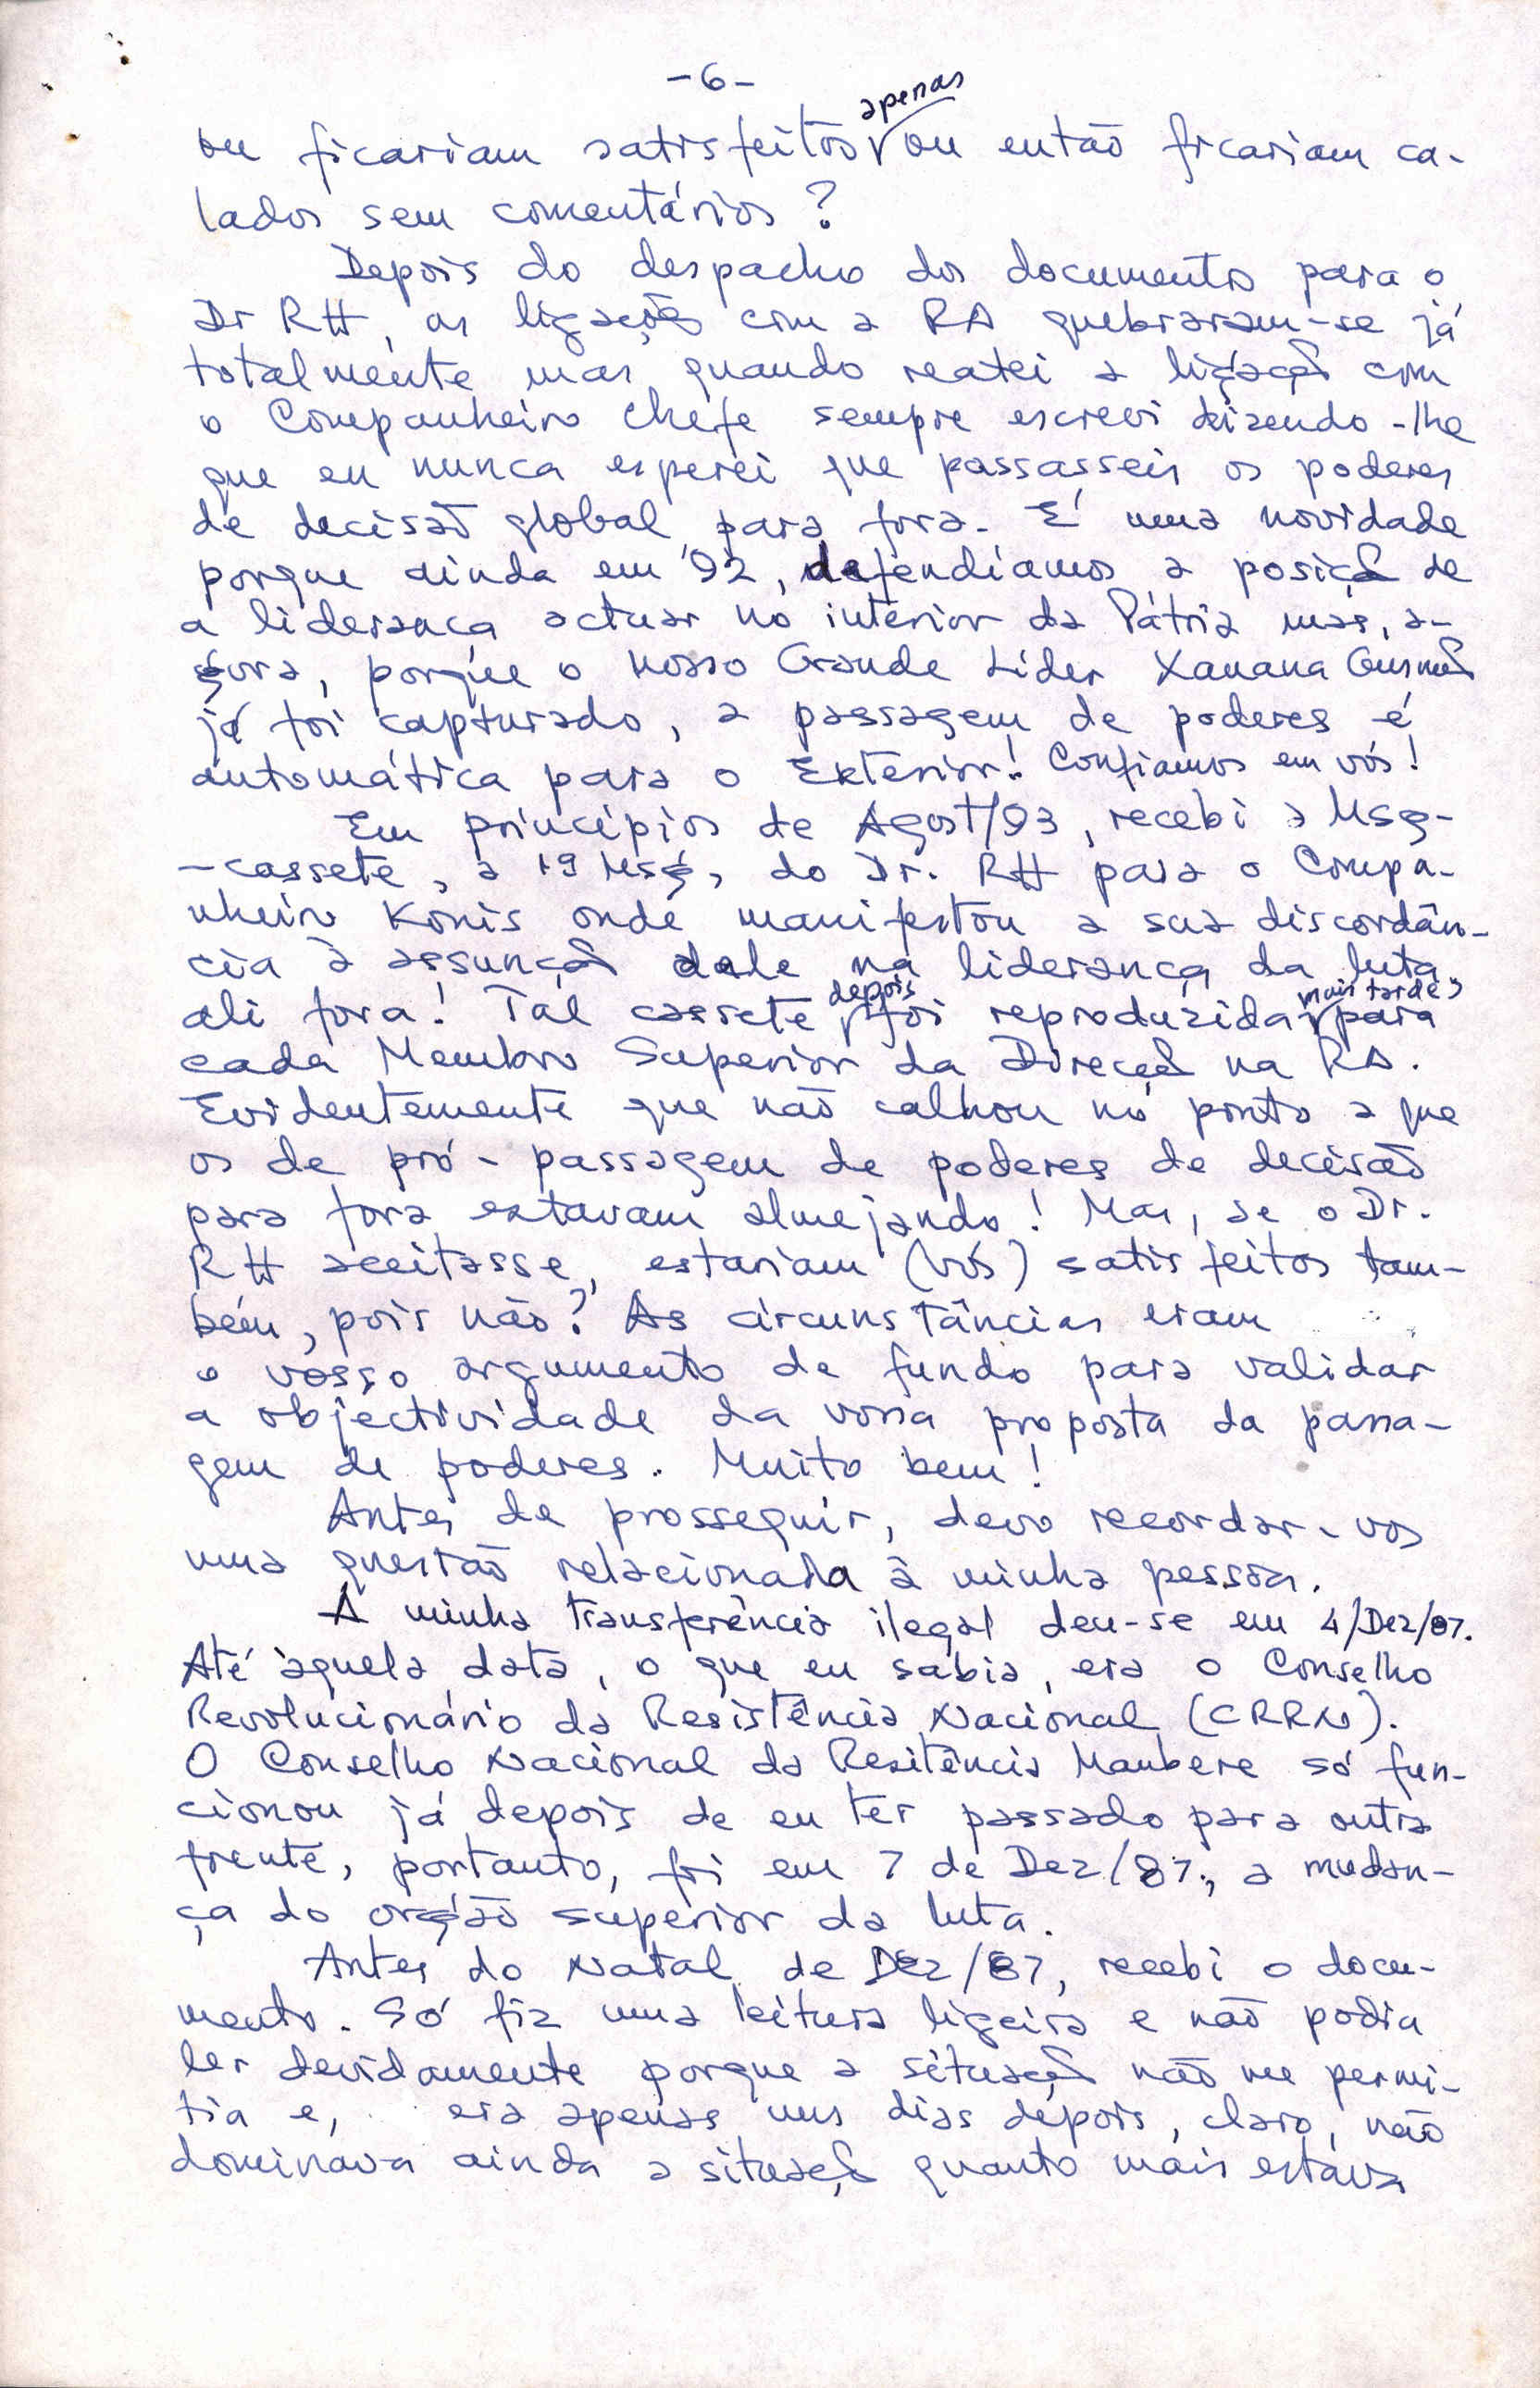 -6-
ou ficariam satisfeitos apenas ou então ficariam ca-
lados sem comentários?
Depois do despacho dos documentos para o
Dr RH, as ligações com a RA quebraram-se já
totalmente mas, quando reatei a ligação com
o Companheiro Chefe sempre escrevi dizendo-lhe
que eu nunca esperei que passasseis os poderes
de decisão global para fora. É uma novidade
porque ainda em '92, defendíamos a posição de
a liderança actuar no interior da Pátria mas, a-
gora, porque o nosso Grande Líder Xanana Gusmão
já foi capturado, a passagem de poderes é
automática para o Exterior! Confiamos em vós!
Em princípios de Agost/93, recebi a Msg-
-cassete, a 1ª Msg, do Dr. RH para o Compa-
nheiro Konis onde manifestou a sua discordân-
cia à assunção dele na liderança da luta
ali fora! Tal cassete depois foi reproduzida mais tarde para
cada Membro Superior da Direcção na RA.
Evidentemente que não calhou no ponto a que
os de pró-passagem de poderes de decisão
para fora estavam almejando! Mas, se o Dr.
RH aceitasse, estariam (vós) satisfeitos tam-
bém, pois não? As circunstâncias eram
o vosso argumento de fundo para validar
a objectividade da vossa proposta da passa-
gem de poderes. Muito bem!
Antes de prosseguir, devo recordar-vos
uma questão relacionada à minha pessoa.
A minha transferência ilegal deu-se em 4/Dez/87.
Até àquela data, o que eu sabia, era o Conselho
Revolucionário da Resistência Nacional (CRRN).
O Conselho Nacional da Resitência Maubere só fun-
cionou já depois de eu ter passado para outra
frente, portanto, foi em 7 de Dez/87, a mudan-
ça do orgão superior da luta.
Antes do Natal de Dez/87, recebi o docu-
mento. Só fiz uma leitura ligeira e não podia
ler devidamente porque a situação não me permi-
tia e, era apenas uns dias depois, claro, não
dominava ainda a situação quanto mais estava